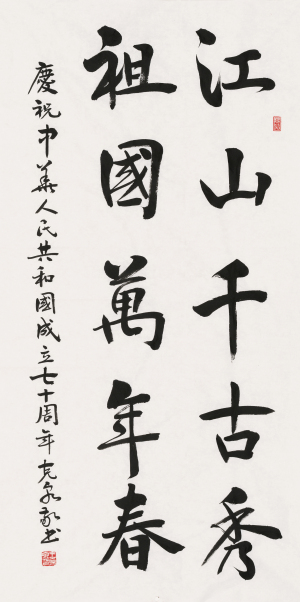 江山千古秀
祖國萬年春
慶祝中華人民共和國成立七十周年 克泉敬书